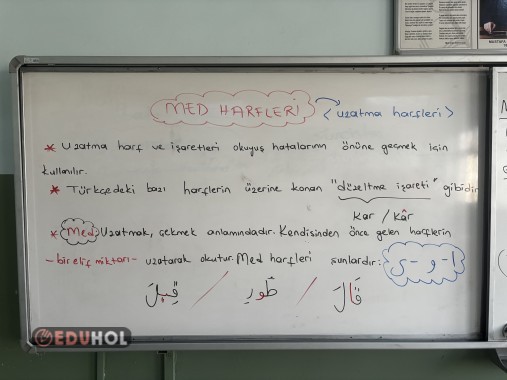 MED HARFLERİ
< uzatma harfleri >
* Uzatma harf ve işaretleri okuyuş hatalarının önüne geçmek için
kullanılır.
* Türkçedeki bazı harflerin üzerine konan "düzeltme işareti" gibidir
Kar / Kâr
* Med Uzatmak, çekmek anlamındadır. Kendisinden önce gelen harflerin
- bir elif miktarı - uzatarak okutur. Med harfleri şunlardır:
ا - و - ى
قَالَ / طُورِ / قِيلَ
EDUHOL